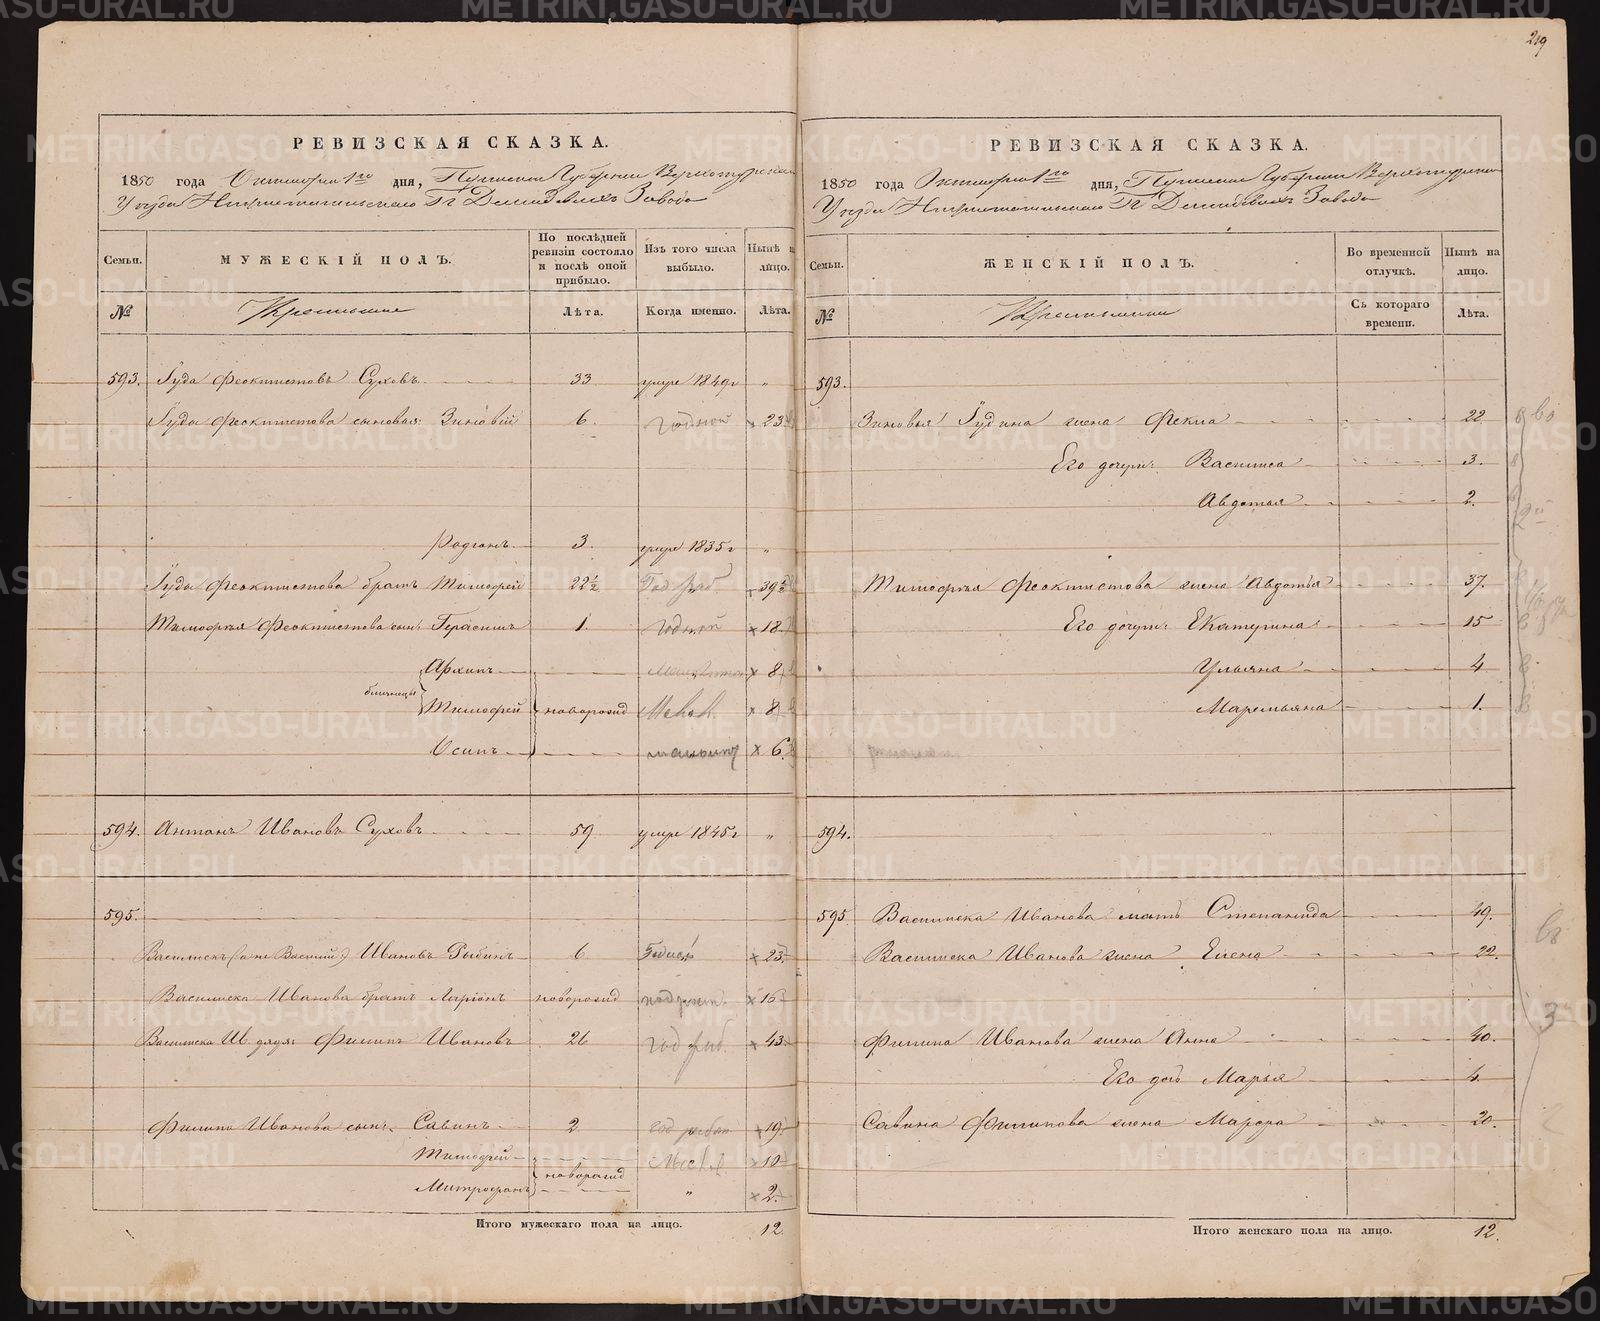 219
РЕВИЗСКАЯ СКАЗКА.
1850 года Октября 1го дня, Пермской Губернии Верхотурскаго
Уезда Нижнетагильскаго Гг Демидовыхъ Завода
Семьи. МУЖЕСКІЙ ПОЛЪ. По послѣдней ревизіи состояло и послѣ оной прибыло. Изъ того числа выбыло. Нынѣ на лицо.
№ Крестьяне Лѣта. Когда именно. Лѣта.
593. Іуда Феоктистовъ Суховъ 33 умре 1849г "
Іуды Феоктистова сыновья: Зиновій 6. годной 23
Родіонъ 3. умре 1835г "
Іуды Феоктистова братъ Тимофей 22½ Год раб. 39½
Тимофея Феоктистова сын: Герасимъ 1. годной 18
Архипъ 8
близнецы Тимофей новорожд 8
Осипъ 6.
594. Антонъ Ивановъ Суховъ 59 умре 1845г "
595.
Василискъ (а не Василій) Ивановъ Рыбинъ 6 Годной 23
Василиска Иванова братъ Ларіонъ новорожд 16
Василиска Ив. дядя: Филипъ Ивановъ 26 год раб. 43
Филипа Иванова сын: Савинъ 2 год работ 19
Тимофей 10
новорожд
Митрофанъ " 2.
Итого мужескаго пола на лицо. 12.
РЕВИЗСКАЯ СКАЗКА.
1850 года Октября 1го дня, Пермской Губернии Верхотурскаго
Уезда Нижнетагильскаго Гг Демидовыхъ Завода
Семьи. ЖЕНСКІЙ ПОЛЪ. Во временной отлучкѣ. Нынѣ на лицо.
№ Крестьянки Съ котораго времени. Лѣта.
593.
Зиновья Іудина жена Фекла 22
Его дочери: Василиса 3.
Авдотья 2.
Тимофея Феоктистова жена Авдотья 37.
Его дочери: Екатерина 15
Ульяна 4
Маремьяна 1.
594.
595. Василиска Иванова мать Степанида 49.
Василиска Иванова жена Елена 22.
Филипа Иванова жена Анна 40.
Его дочь Марья 4.
Савина Филипова жена Марфа 20.
Итого женскаго пола на лицо. 12.
METRIKI.GASO-URAL.RU